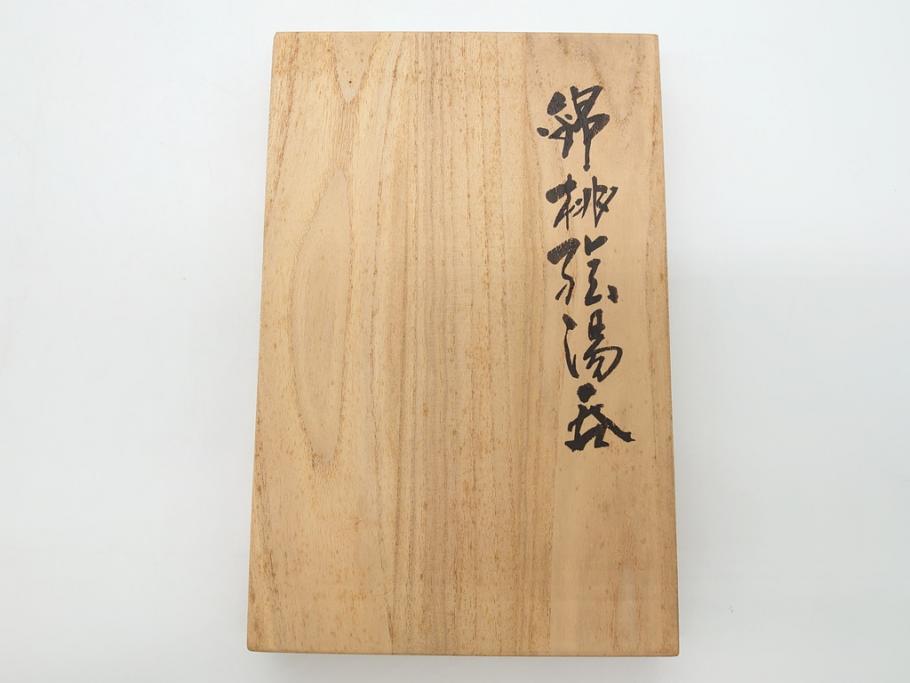 錦桃絵湯呑